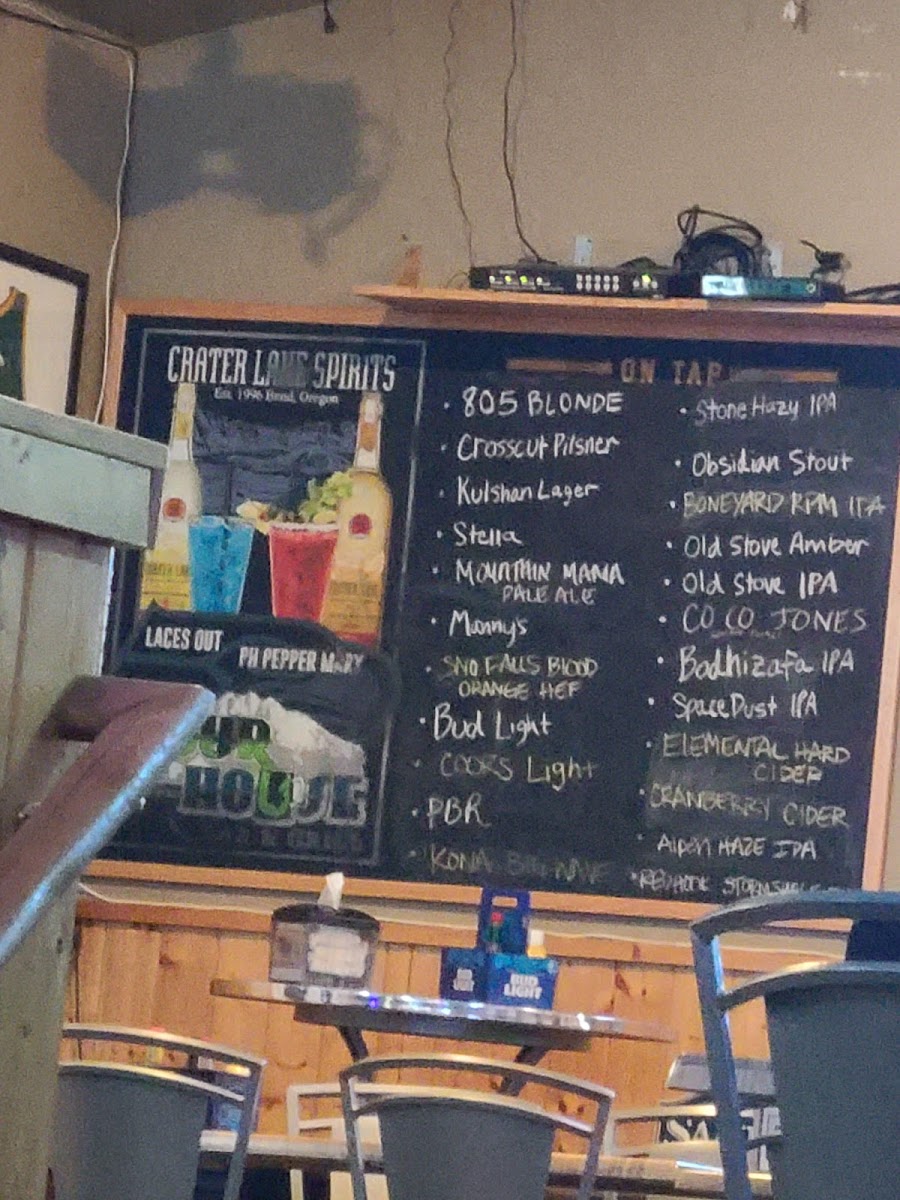 CRATER LAKE SPIRITS
Est. 1996 Bend, Oregon
LACES OUT
PH PEPPER MARY
HOUSE
ON TAP
• 805 BLONDE
• Crosscut Pilsner
• Kulshan Lager
• Stella
• MOUNTAIN MAMA
PALE ALE
• Manny's
• SNO FALLS BLOOD
ORANGE HEF
• Bud Light
• COORS Light
• PBR
• KONA BIG WAVE
• Stone Hazy IPA
• Obsidian Stout
• BONEYARD RPM IPA
• Old Stove Amber
• Old Stove IPA
• CO CO JONES
• Bodhizafa IPA
• Space Dust IPA
• ELEMENTAL HARD
CIDER
• CRANBERRY CIDER
• Alpen HAZE IPA
• REDHOOK
BUD
LIGHT